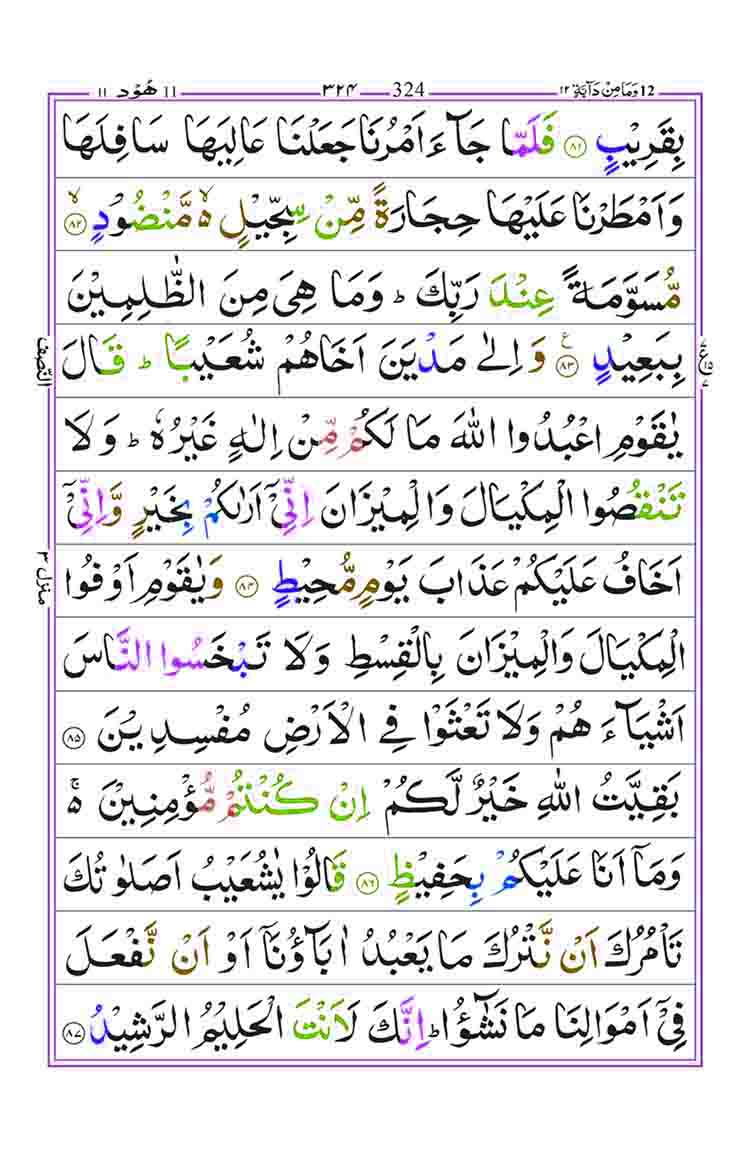 12 وَمَا مِنْ دَآبَّةٍ ١٢ 324 ٣٢٤ 11 هُوْد ١١
بِقَرِيْبٍ ﴿٨١﴾ فَلَمَّا جَآءَ اَمْرُنَا جَعَلْنَا عَالِيَهَا سَافِلَهَا
وَاَمْطَرْنَا عَلَيْهَا حِجَارَةً مِّنْ سِجِّيْلٍ ۙ۬ مَّنْضُوْدٍ ۙ﴿٨٢﴾
مُّسَوَّمَةً عِنْدَ رَبِّكَ ؕ وَمَا هِىَ مِنَ الظّٰلِمِيْنَ
بِبَعِيْدٍ ﴿٨٣﴾ ع وَاِلٰى مَدْيَنَ اَخَاهُمْ شُعَيْبًا ؕ قَالَ
يٰقَوْمِ اعْبُدُوا اللّٰهَ مَا لَكُمْ مِّنْ اِلٰهٍ غَيْرُهٗ ؕ وَلَا
تَنْقُصُوا الْمِكْيَالَ وَالْمِيْزَانَ اِنِّىْۤ اَرٰىكُمْ بِخَيْرٍ وَّاِنِّىْۤ
اَخَافُ عَلَيْكُمْ عَذَابَ يَوْمٍ مُّحِيْطٍ ﴿٨٤﴾ وَيٰقَوْمِ اَوْفُوا
الْمِكْيَالَ وَالْمِيْزَانَ بِالْقِسْطِ وَلَا تَبْخَسُوا النَّاسَ
اَشْيَآءَهُمْ وَلَا تَعْثَوْا فِى الْاَرْضِ مُفْسِدِيْنَ ﴿٨٥﴾
بَقِيَّتُ اللّٰهِ خَيْرٌ لَّكُمْ اِنْ كُنْتُمْ مُّؤْمِنِيْنَ ۚ۬
وَمَاۤ اَنَا عَلَيْكُمْ بِحَفِيْظٍ ﴿٨٦﴾ قَالُوْا يٰشُعَيْبُ اَصَلٰوتُكَ
تَاْمُرُكَ اَنْ نَّتْرُكَ مَا يَعْبُدُ اٰبَآؤُنَاۤ اَوْ اَنْ نَّفْعَلَ
فِىْۤ اَمْوَالِنَا مَا نَشٰٓؤُا ؕ اِنَّكَ لَاَنْتَ الْحَلِيْمُ الرَّشِيْدُ ﴿٨٧﴾
النّصف
منزل ٣